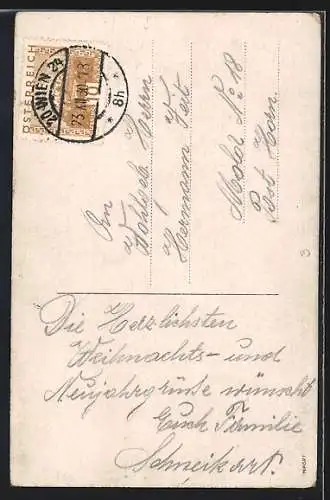 ÖSTERREICH
20 WIEN 24
8h
An
Wohlgeb. Herrn
Hermann Veit
Molds No 18
Post Horn.
Die Herzlichsten
Weihnachts- und
Neujahrgrüße wünscht
Euch Familie
Schneikart.